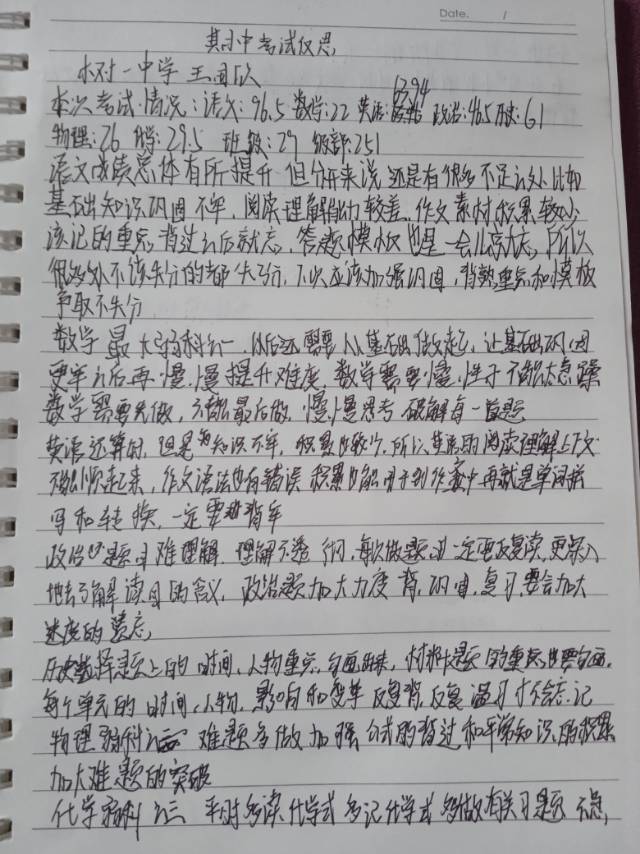 Date. /
期中考试反思
林对一中学 王国欣
1394
本次考试情况:语文:96.5 数学:22 英语: 政治:46.5 历史:61
物理:26 化学:29.5 班级:29 级部:251
语文成绩总体有所提升 但分开来说 还是有很多不足之处 比如
基础知识巩固不牢,阅读理解能力较差,作文素材积累较少
该记的重点 背过以后就忘,答题模板也是一会儿忘,所以
很多处不该失分的都失了分,下次应该加强巩固,背熟重点和模板
争取不失分
数学 最大弱科之一 以后还需要从基础做起,让基础巩固
更牢之后再慢慢提升难度,数学需要慢,性子不能太急躁
数学需要先做,不能最后做,慢慢思考 破解每一道题
英语还算可,但是知识不牢,积累比较少,所以英语的阅读理解上下文
不能顺起来,作文语法也有错误 积累也能用于到作文中 再就是单词拼
写和转换,一定要背牢
政治 题目难理解,理解不透彻,每次做题时一定要反复读,更深入
地去了解读目的含义,政治题加大力度背,巩固,复习,要会加大
速度的
历史选择题上的时间,人物重点,勾画出来,材料题的重点也要勾画,
每个单元的时间,人物,影响和变革 反复背,反复温习才不会忘记
物理弱科之二 难题多做 加强公式的背过和平常知识的积累
加大难题的突破
化学弱科之三 平时多读化学式 多记化学式 多做有关习题 不急,